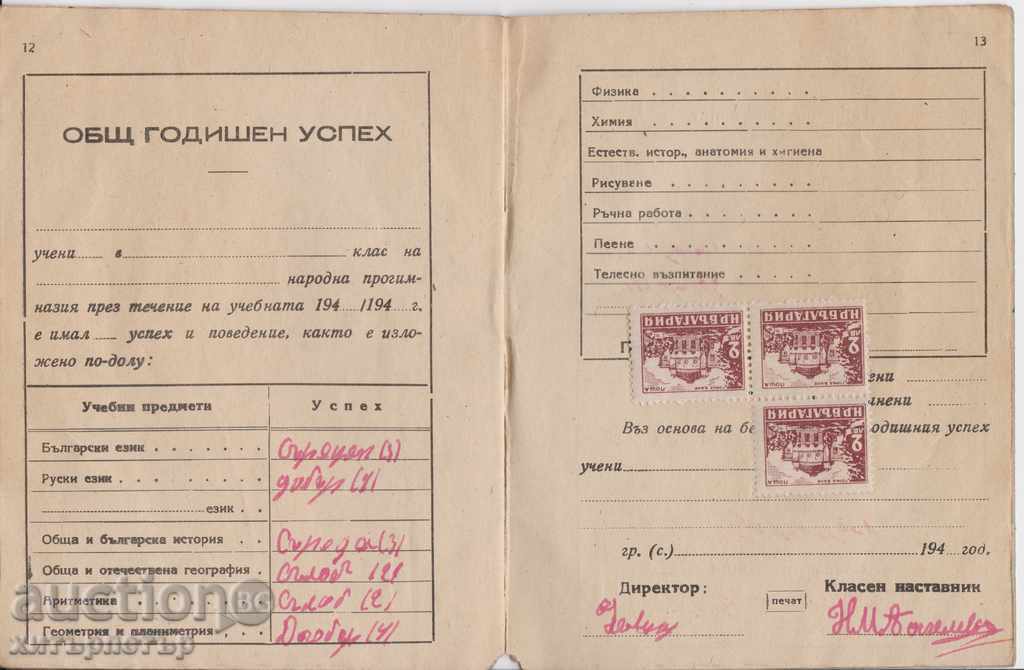 12
ОБЩ ГОДИШЕН УСПЕХ
учени в клас на
народна прогим-
назия през течение на учебната 194 /194 г.
е имал успех и поведение, както е изло-
жено по-долу:
Учебни предмети Успех
Български език Среден (3)
Руски език добър (4)
език
Обща и българска история Среден (3)
Обща и отечествена география Слаб (2)
Аритметика Слаб (2)
Геометрия и планиметрия Добър (4)
13
Физика
Химия
Естеств. истор., анатомия и хигиена
Рисуване
Ръчна работа
Пеене
Телесно възпитание
НРБЪЛГАРИЯ
2 ЛВ
ПОЩА
НРБЪЛГАРИЯ
2 ЛВ
ПОЩА
НРБЪЛГАРИЯ
2 ЛВ
ПОЩА
ени
нени
Въз основа на бе одишния успех
учени
гр. (с.) 194 год.
Директор: печат Класен наставник
auction BG
хитърпетър